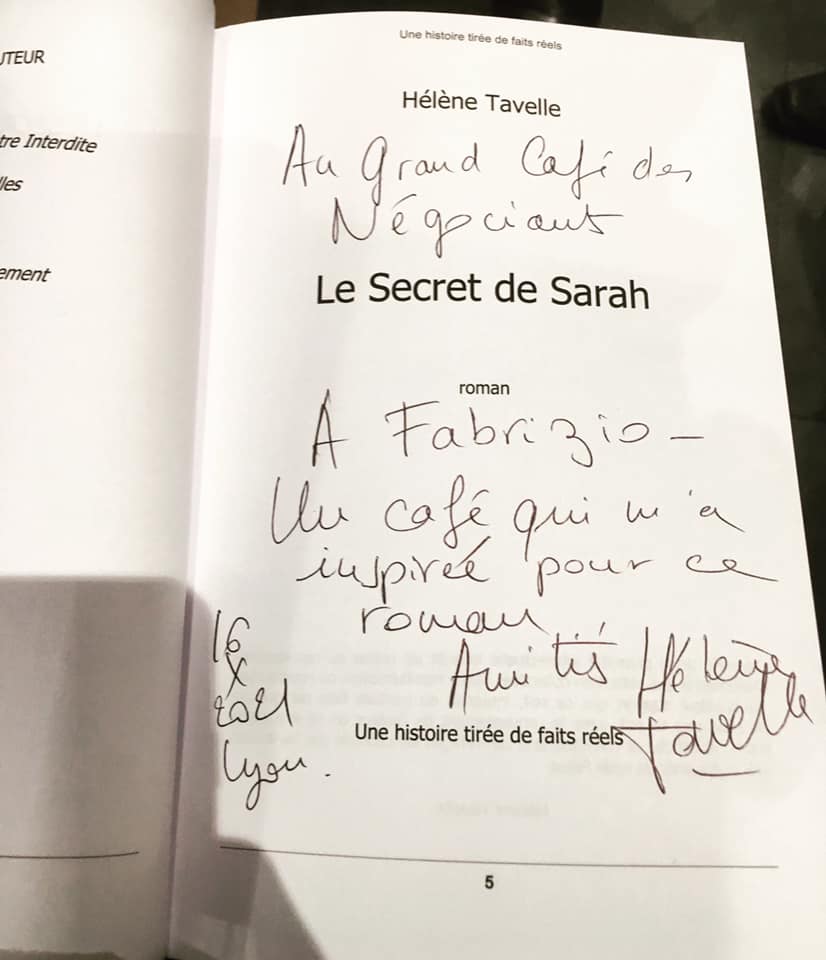 UTEUR
tre Interdite
lles
ement
Une histoire tirée de faits réels
Hélène Tavelle
Au Grand Café des
Négociants
Le Secret de Sarah
roman
A Fabrizio —
Un café qui m'a
inspirée pour ce
roman...
Amitiés Hélène
Tavelle
16
X
2021
Lyon.
Une histoire tirée de faits réels
5